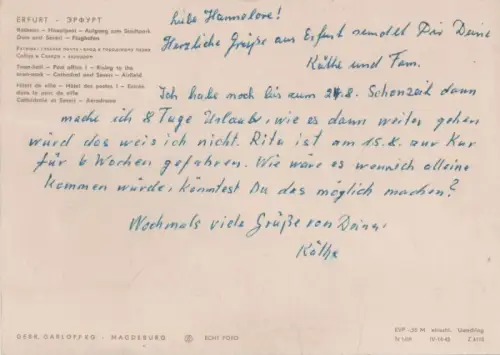 ERFURT - ЭРФУРТ
Rathaus — Hauptpost — Aufgang zum Stadtpark
Dom und Severi — Flughafen
Собор и Севери - аэропорт
Town-hall — Post office I — Rising to the
town-park — Cathedral and Severi — Airfield
Hôtel de ville — Hôtel des postes I — Entrée
dans le parc de ville
Cathédrale et Severi — Aérodrome
Liebe Hannelore!
Herzliche Grüße aus Erfurt sendet Dir Deine
Käthe und Fam.
Ich habe noch bis zum 24.8. Schonzeit dann
mache ich 8 Tage Urlaub, wie es dann weiter gehen
würd das weis ich nicht. Rita ist am 15.8. zur Kur
für 6 Wochen gefahren. Wie wäre es wenn ich alleine
kommen würde, könntest Du das möglich machen?
Nochmals viele Grüße von Deiner
Käthe
GEBR. GARLOFF KG - MAGDEBURG
ECHT FOTO
EVP -,20 M
IV-14-45